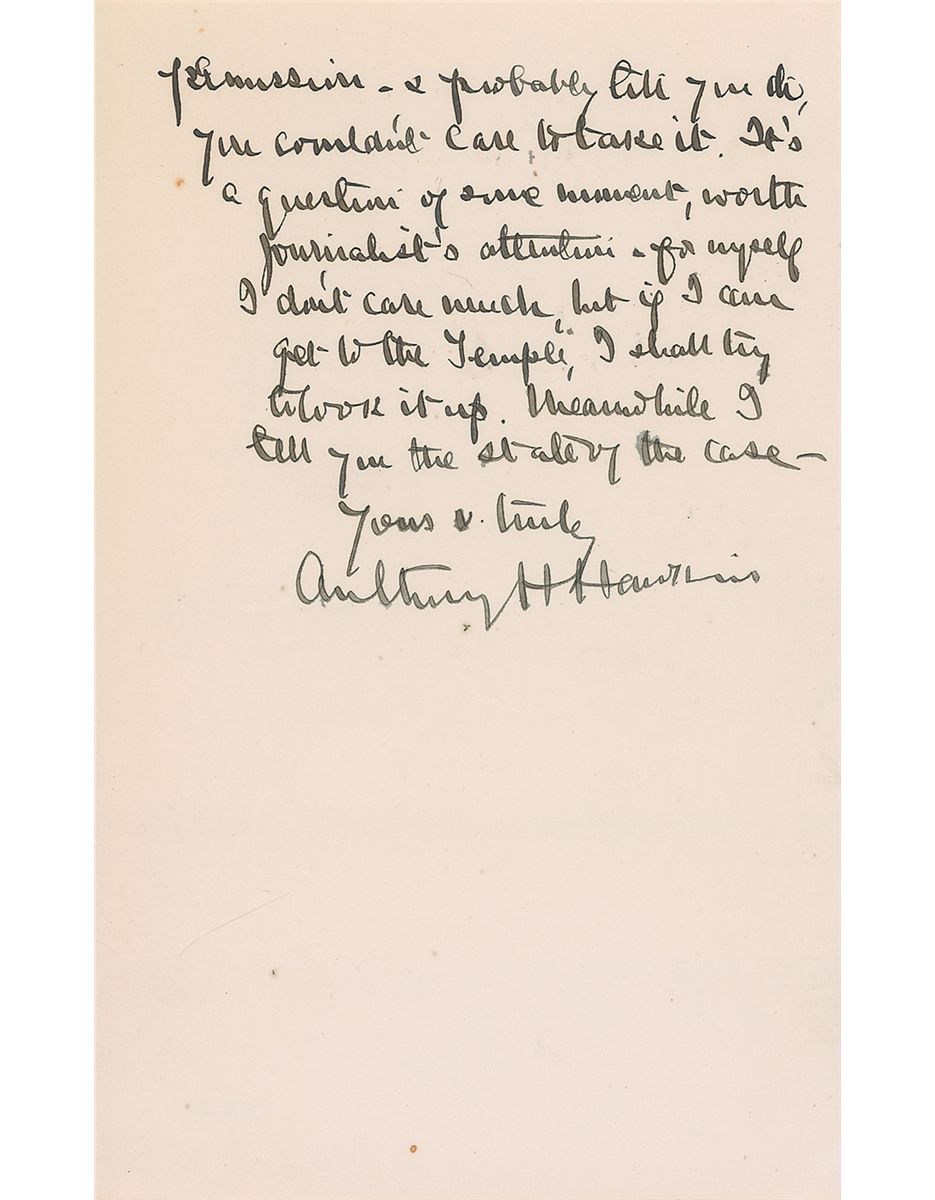 permission - & probably till you do,
you wouldn't care to take it. It's
a question of some moment, worth
journalist's attention - for myself
I don't care much, but if I can
get to the Temple, I shall try
to look it up. Meanwhile I
tell you the state of the case -
Yours v. truly
Anthony H Hawkins